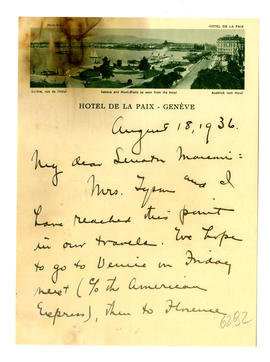 HOTEL DE LA PAIX
Genève et Mont-Blanc as seen from the Hotel
HOTEL DE LA PAIX - GENÈVE
August 18, 1936.
My dear Senator
Mrs. Tyson and I
have reached this point
in our travels. We hope
to go to Venice on Friday
next (c/o the American
Express), then to Florence
6292